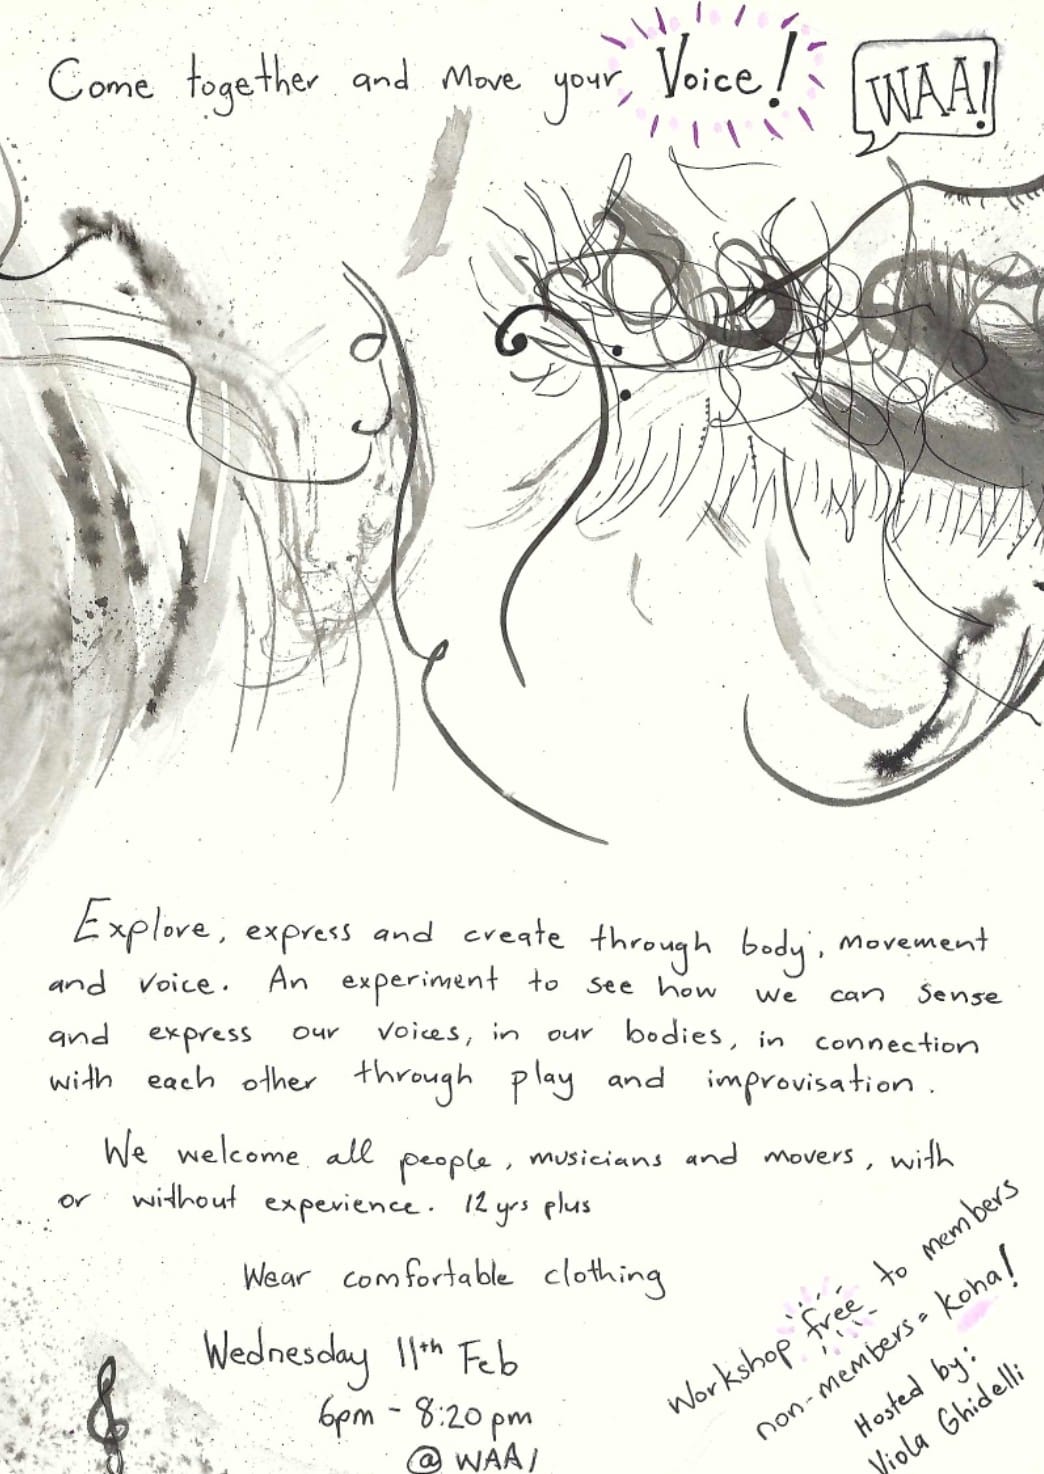 Come together and Move your Voice!
WAA!
Explore, express and create through body, movement
and voice. An experiment to see how we can sense
and express our voices, in our bodies, in connection
with each other through play and improvisation.
We welcome all people, musicians and movers, with
or without experience. 12 yrs plus
Wear comfortable clothing
Wednesday 11th Feb
6pm - 8:20 pm
@ WAA!
Workshop free to members
non-members = koha!
Hosted by:
Viola Ghidelli